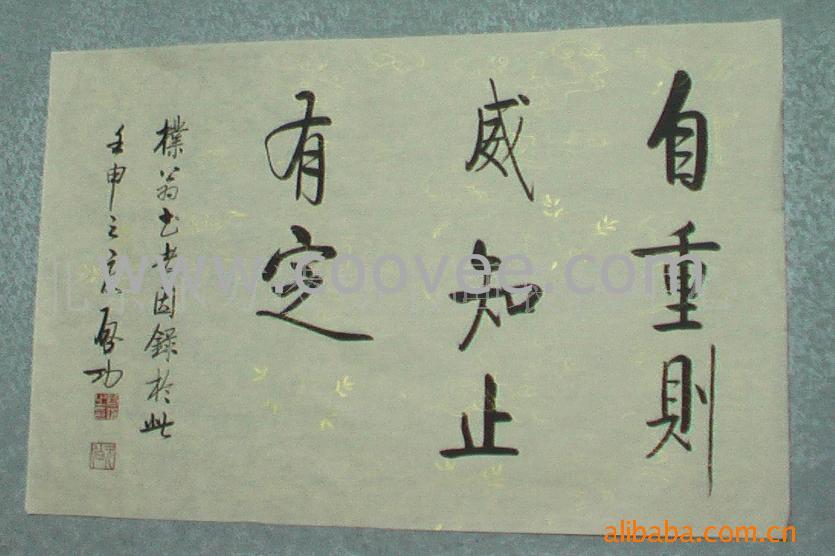 自重則
威知止
有定
樸翁書者因錄於此
壬申之夏 啓功
www.coovee.com
alibaba.com.cn